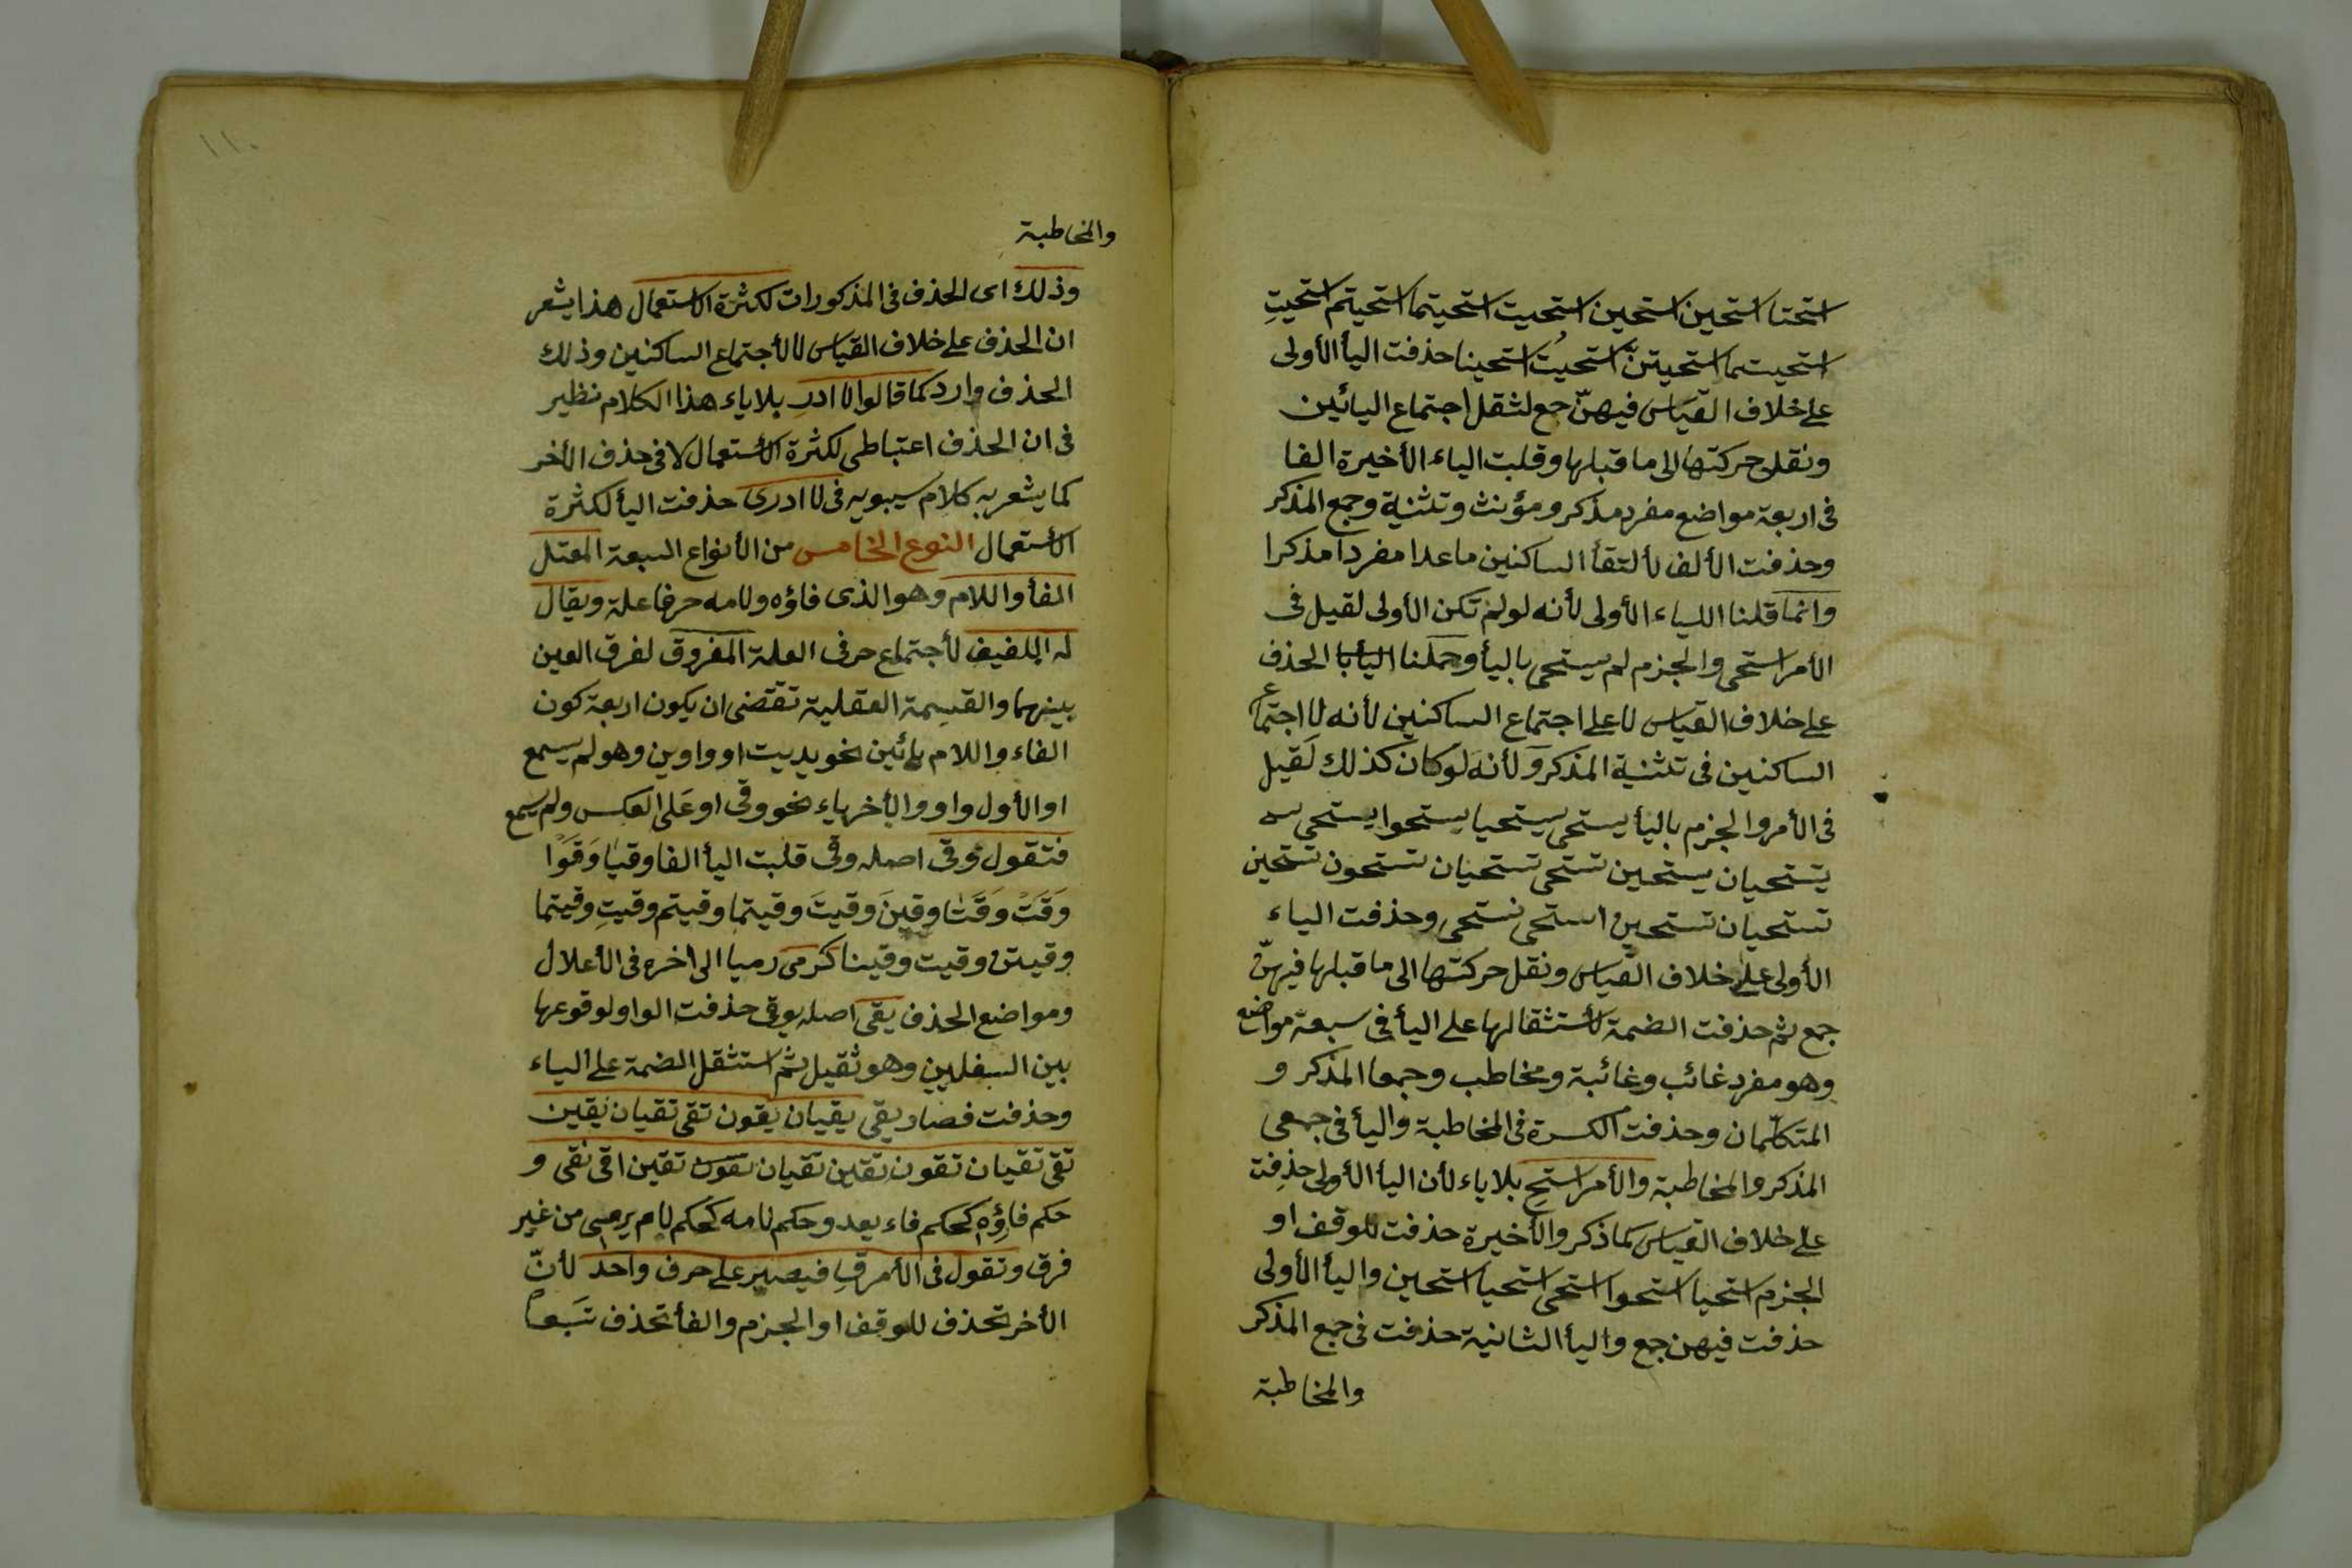 استحتا استحين استحين استحيت استحيتما استحيتم استحيتِ
استحيتما استحيتنّ استحيتُ استحينا حذفت اليأ الأولى
على خلاف القياس فيهنّ جمع لثقل اجتماع اليائين
ونقل حركتها الى ما قبلها وقلبت الياء الأخيرة الفا
فى اربعة مواضع مفرد مذكر ومؤنث وتثنية وجمع المذكر
وحذفت الألف لألتقأ الساكنين ماعدا مفردا مذكرا
وانما قلنا الياء الأولى لأنه لو لم تكن الأولى لقيل فى
الأمر استحى والجزم لم يستحى باليأ وحملنا الحذف
على خلاف القياس لا على اجتماع الساكنين لأنه لا اجتماع
الساكنين فى تثنية المذكر ولأنه لو كان كذلك لقيل
فى الأمر والجزم باليأ يستحى يستحيا يستحوا يستحى
يستحيان يستحين تستحى تستحيان تستحون تستحين
تستحيان تستحين استحى نستحى وحذفت الياء
الأولى على خلاف القياس ونقل حركتها الى ما قبلها فيهنّ
جمع ثم حذفت الضمة لأستثقالها على اليأ فى سبعة مواضع
وهو مفرد غائب وغائبة ومخاطب وجمعا المذكر و
المتكلّمان وحذفت الكسرة فى المخاطبة واليأ فى جمعى
المذكر والمخاطبة والأمر استحِ بلا ياء لأن اليأ الأولى حذفت
على خلاف القياس كما ذكر والأخيرة حذفت للوقف او
الجزم استحيا استحوا استحى استحيا استحين واليأ الأولى
حذفت فيهن جمع واليأ الثانية حذفت فى جمع المذكر
والمخاطبة
١١٠
والمخاطبة
وذلك اى الحذف فى المذكورات لكثرة الاستعمال هذا يشعر
ان الحذف على خلاف القياس لا لأجتماع الساكنين وذلك
الحذف وارد كما قالوا لا ادرِ بلا ياء هذا الكلام نظير
فى ان الحذف اعتباطى لكثرة الأستعمال لا فى حذف الأخر
كما يشعر به كلام سيبويه فى لا ادرى حذفت اليأ لكثرة
الأستعمال النوع الخامس من الأنواع السبعة المعتل
الفأ واللام وهو الذى فاؤه ولامه حرفا علة ويقال
له اللفيف لأجتماع حرفى العلة المفروق لفرق العين
بينهما والقسمة العقلية تقتضى ان يكون اربعة كون
الفاء واللام يائين نحو يديت او واوين وهو لم يسمع
او الأول واو والأخر ياء نحو وقى او على العكس ولم يسمع
فتقول وقى اصله وقى قلبت اليأ الفا وقيا وَقَوْا
وَقَتْ وَقَتَا وقينَ وقيتَ وقيتما وقيتم وقيتِ وقيتما
وقيتن وقيت وقينا كرمى رميا الى اخره فى الأعلال
ومواضع الحذف يقى اصله يوقى حذفت الواو لوقوعها
بين السفليين وهو ثقيل ثم استثقل الضمة على الياء
وحذفت فصار يقى يقيان يقون تقى تقيان يقين
تقى تقيان تقون تقين تقيان تقين اقى نقى و
حكم فاؤه كحكم فاء يعد وحكم لامه كحكم لام يرمى من غير
فرق وتقول فى الأمر قِ فيصير على حرف واحد لأنّ
الأخر تحذف للوقف او الجزم والفأ تحذف تَبَعاً